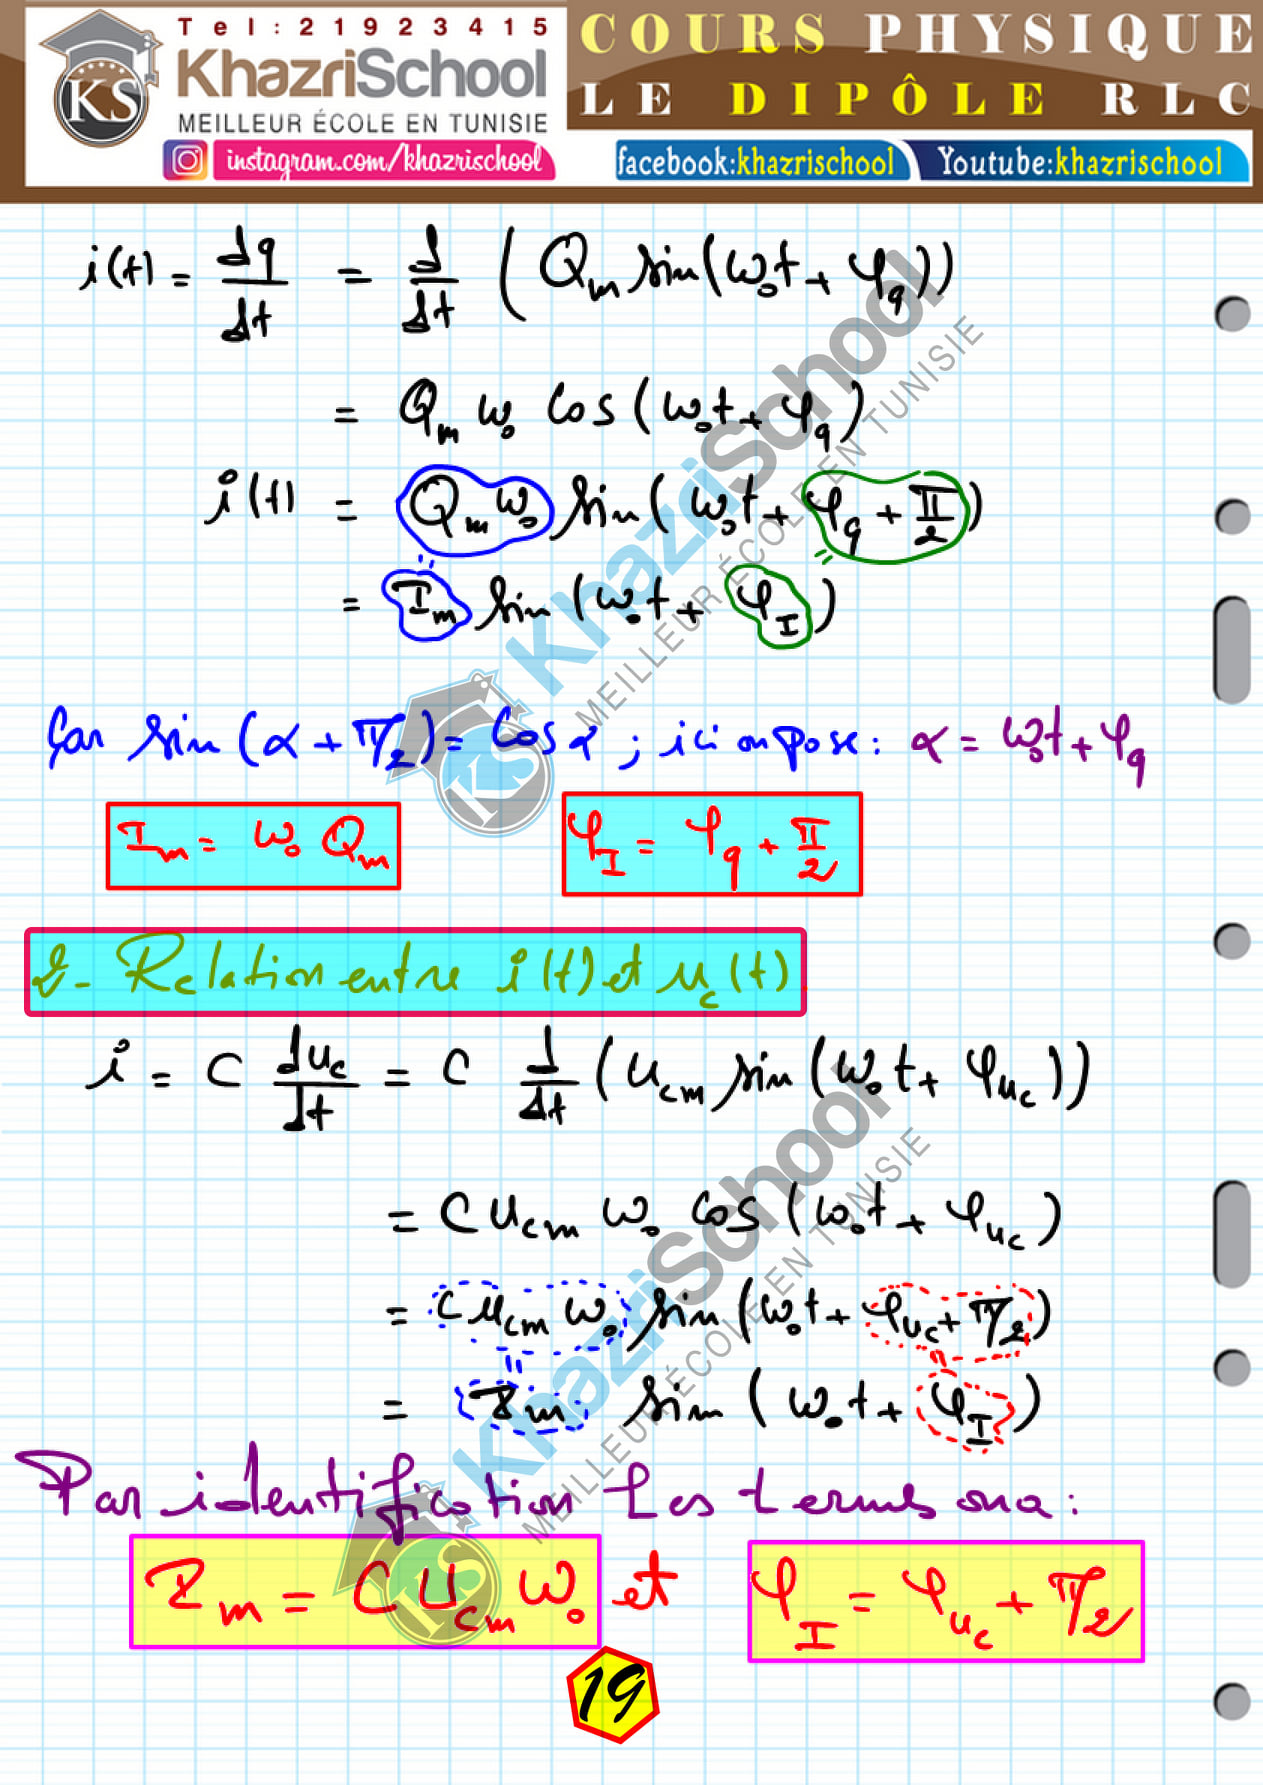 Tel:21923415
KhazriSchool
MEILLEUR ÉCOLE EN TUNISIE
KS
instagram.com/khazrischool
COURS PHYSIQUE
LE DIPÔLE RLC
facebook:khazrischool
Youtube:khazrischool
i(t) = dq/dt = d/dt (Qm sin(ω₀t + φq))
= Qm ω₀ cos(ω₀t + φq)
i(t) = Qm ω₀ sin(ω₀t + φq + π/2)
= Im sin(ω₀t + φI)
Car sin(α + π/2) = cos α ; ici on pose : α = ω₀t + φq
Im = ω₀ Qm
φI = φq + π/2
2- Relation entre i(t) et uc(t)
i = C duc/dt = C d/dt (Ucm sin(ω₀t + φuc))
= C Ucm ω₀ cos(ω₀t + φuc)
= C Ucm ω₀ sin(ω₀t + φuc + π/2)
= Im sin(ω₀t + φI)
Par identification des termes on a :
Im = C Ucm ω₀ et φI = φuc + π/2
19
KhazriSchool
MEILLEUR ÉCOLE EN TUNISIE
KS
KhazriSchool
MEILLEUR ÉCOLE EN TUNISIE
KS